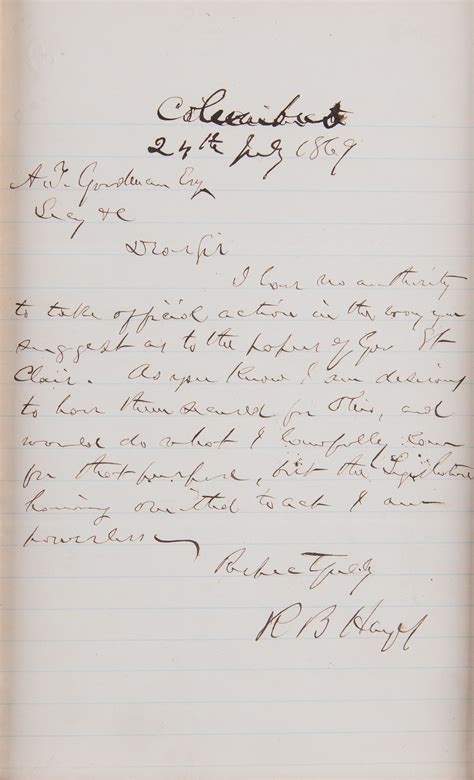 Columbus
24th July 1869
A. T. Goodman Esq
Secy &c
Dear Sir
I have no authority
to take official action in the way you
suggest as to the papers of Gov St
Clair. As you know I am desirous
to have them secured for Ohio, and
would do what I lawfully can
for that purpose, but the Legislature
having omitted to act I am
powerless
Respectfully
R B Hayes